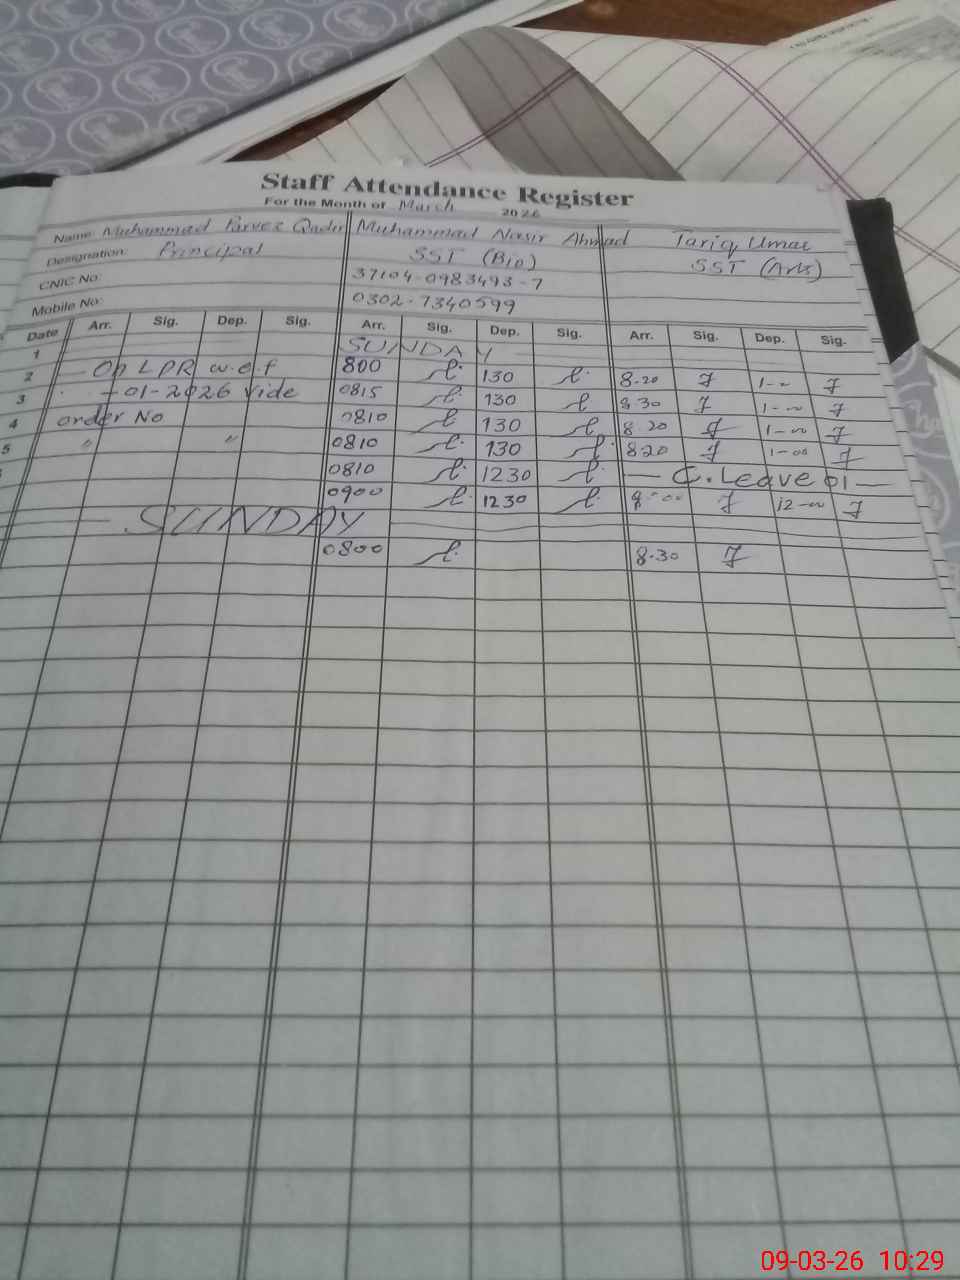 Staff Attendance Register
For the Month of March 2026
Name: Muhammad Parvez Qadir Muhammad Nasir Ahmad Tariq Umar
Designation: Principal SST (Bio) SST (Arts)
CNIC No: 37104-0983493-7
Mobile No: 0302-7340599
Date Arr. Sig. Dep. Sig. Arr. Sig. Dep. Sig. Arr. Sig. Dep. Sig.
1 SUNDAY
2 On LPR w.e.f 800 130 8-20 1-
3 -01-2026 vide 0815 130 8-30 1-00
4 order No 0810 130 8-20 1-00
5 " " 0810 130 820 1-00
0810 1230 C. Leave 01
0900 1230 12-00
SUNDAY
0800 8-30
09-03-26 10:29